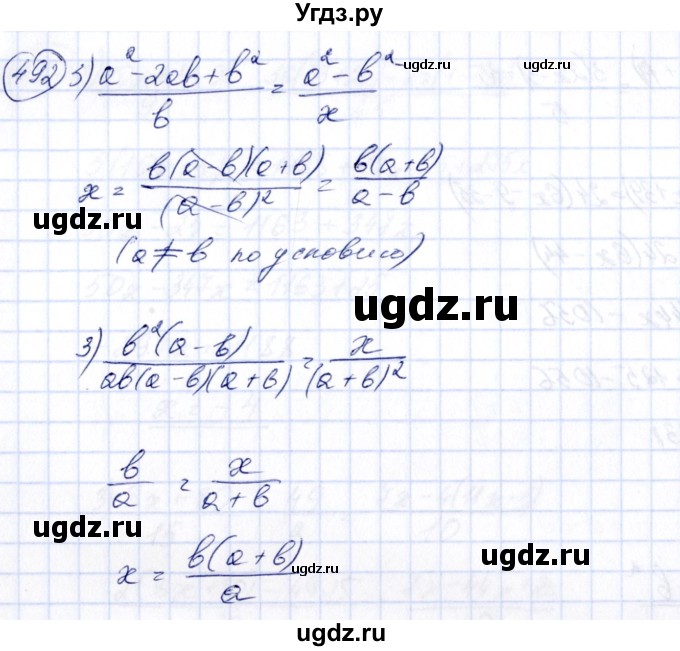 Угдз.ру
492 3) (a² - 2ab + b²)/b = (a² - b²)/x
ugdz.ru ugdz.ru
x = b(a-b)(a+b)/(a-b)² = b(a+b)/(a-b)
ugdz.ru
(a ≠ b по условию)
ugdz.ru
3) b²(a-b)/(ab(a-b)(a+b)) = x/(a+b)²
b/a = x/(a+b)
ugdz.ru ugdz.ru
x = b(a+b)/a
ugdz.ru
ugdz.ru